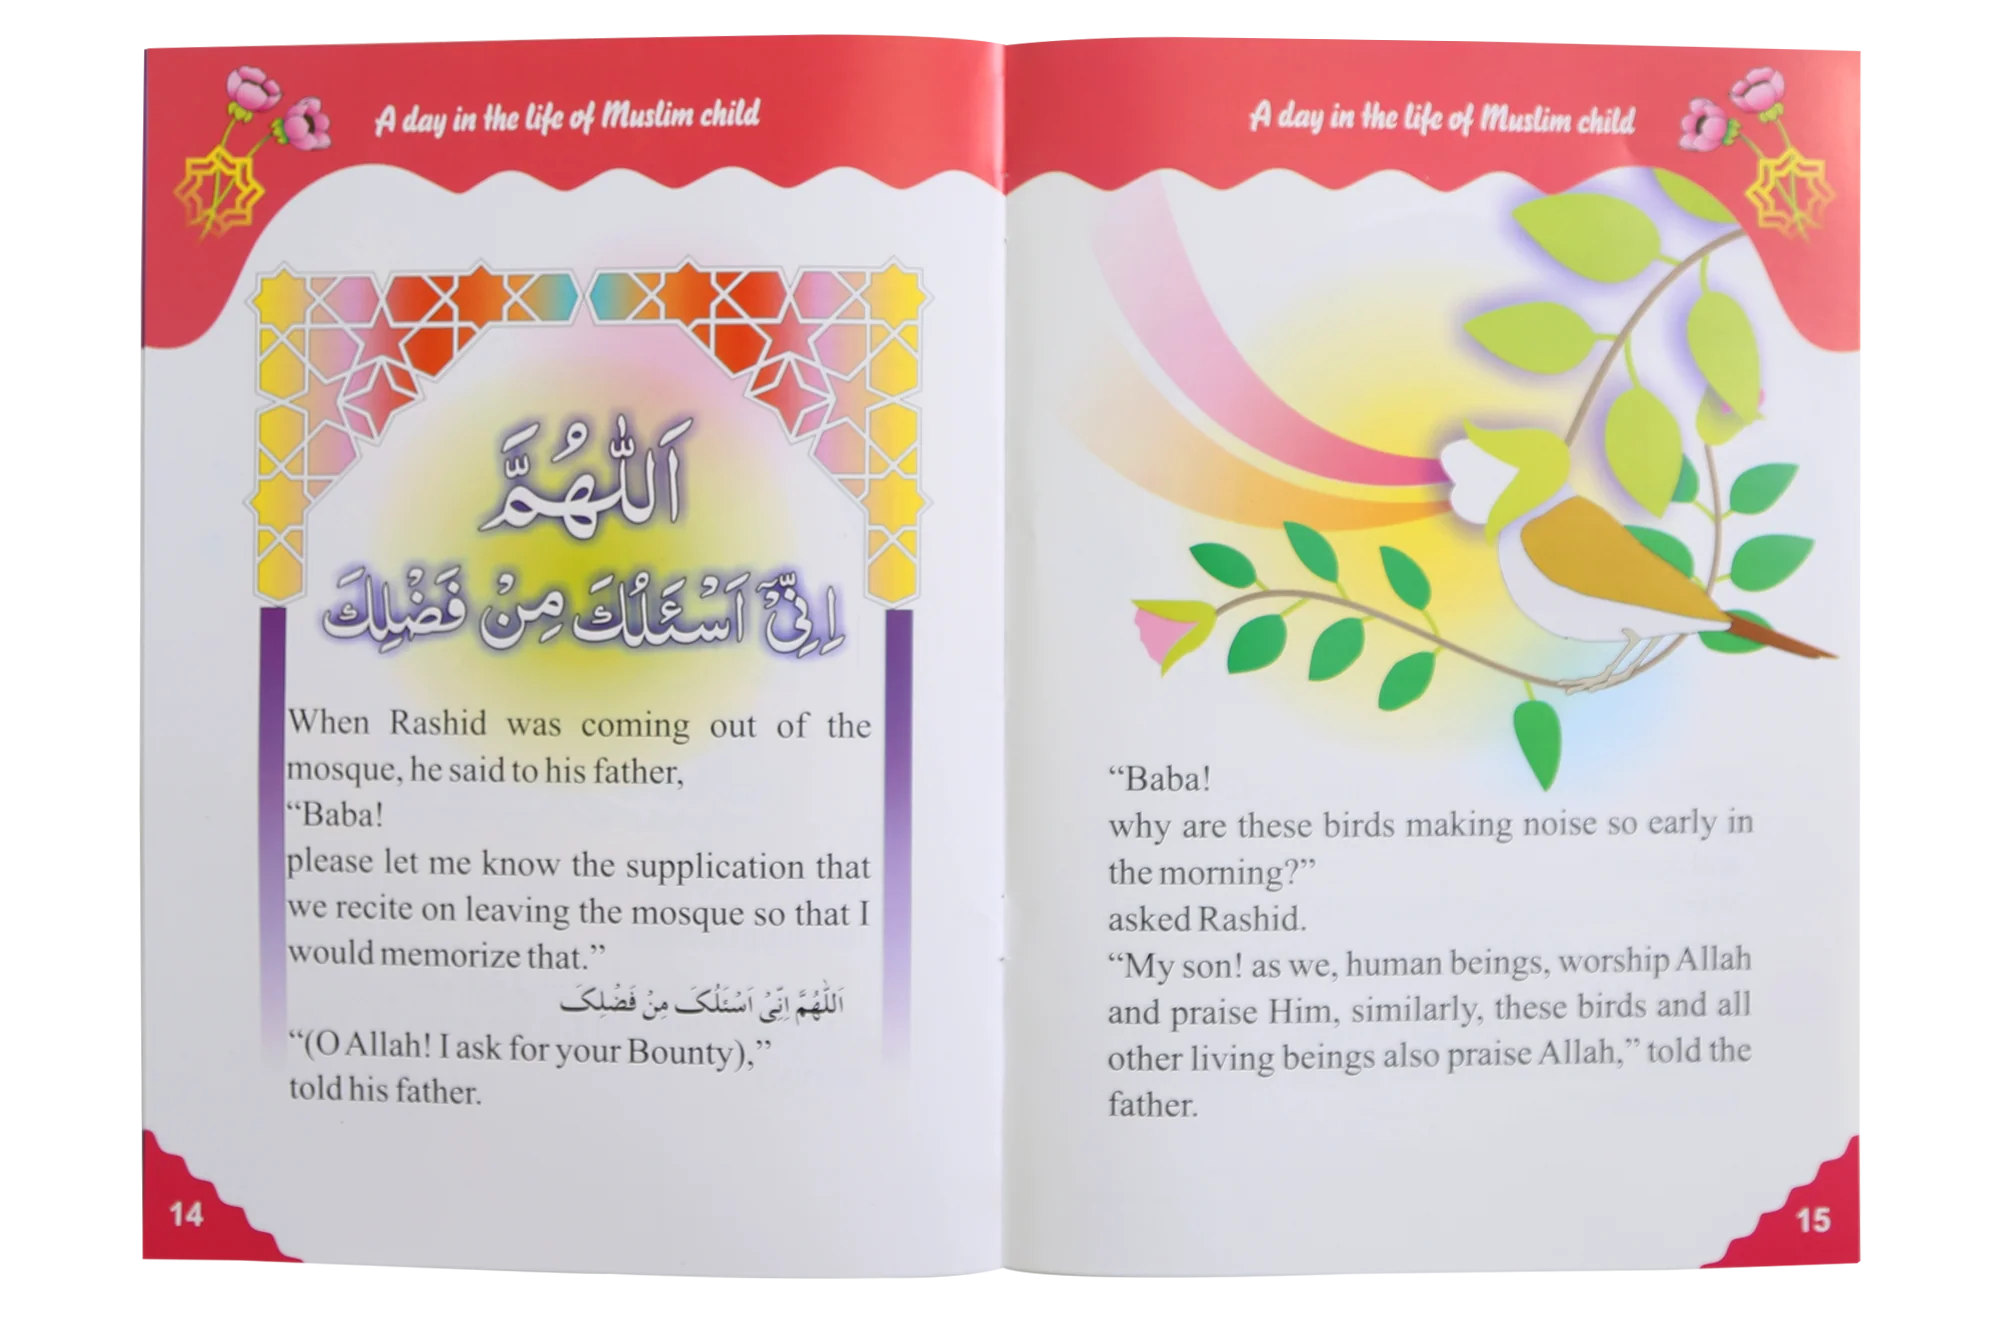 A day in the life of Muslim child
اَللّٰهُمَّ
اِنِّیْۤ اَسْئَلُكَ مِنْ فَضْلِكَ
When Rashid was coming out of the
mosque, he said to his father,
“Baba!
please let me know the supplication that
we recite on leaving the mosque so that I
would memorize that.”
اَللّٰهُمَّ اِنِّیْ اَسْئَلُکَ مِنْ فَضْلِکَ
“(O Allah! I ask for your Bounty),”
told his father.
14
A day in the life of Muslim child
“Baba!
why are these birds making noise so early in
the morning?”
asked Rashid.
“My son! as we, human beings, worship Allah
and praise Him, similarly, these birds and all
other living beings also praise Allah,” told the
father.
15